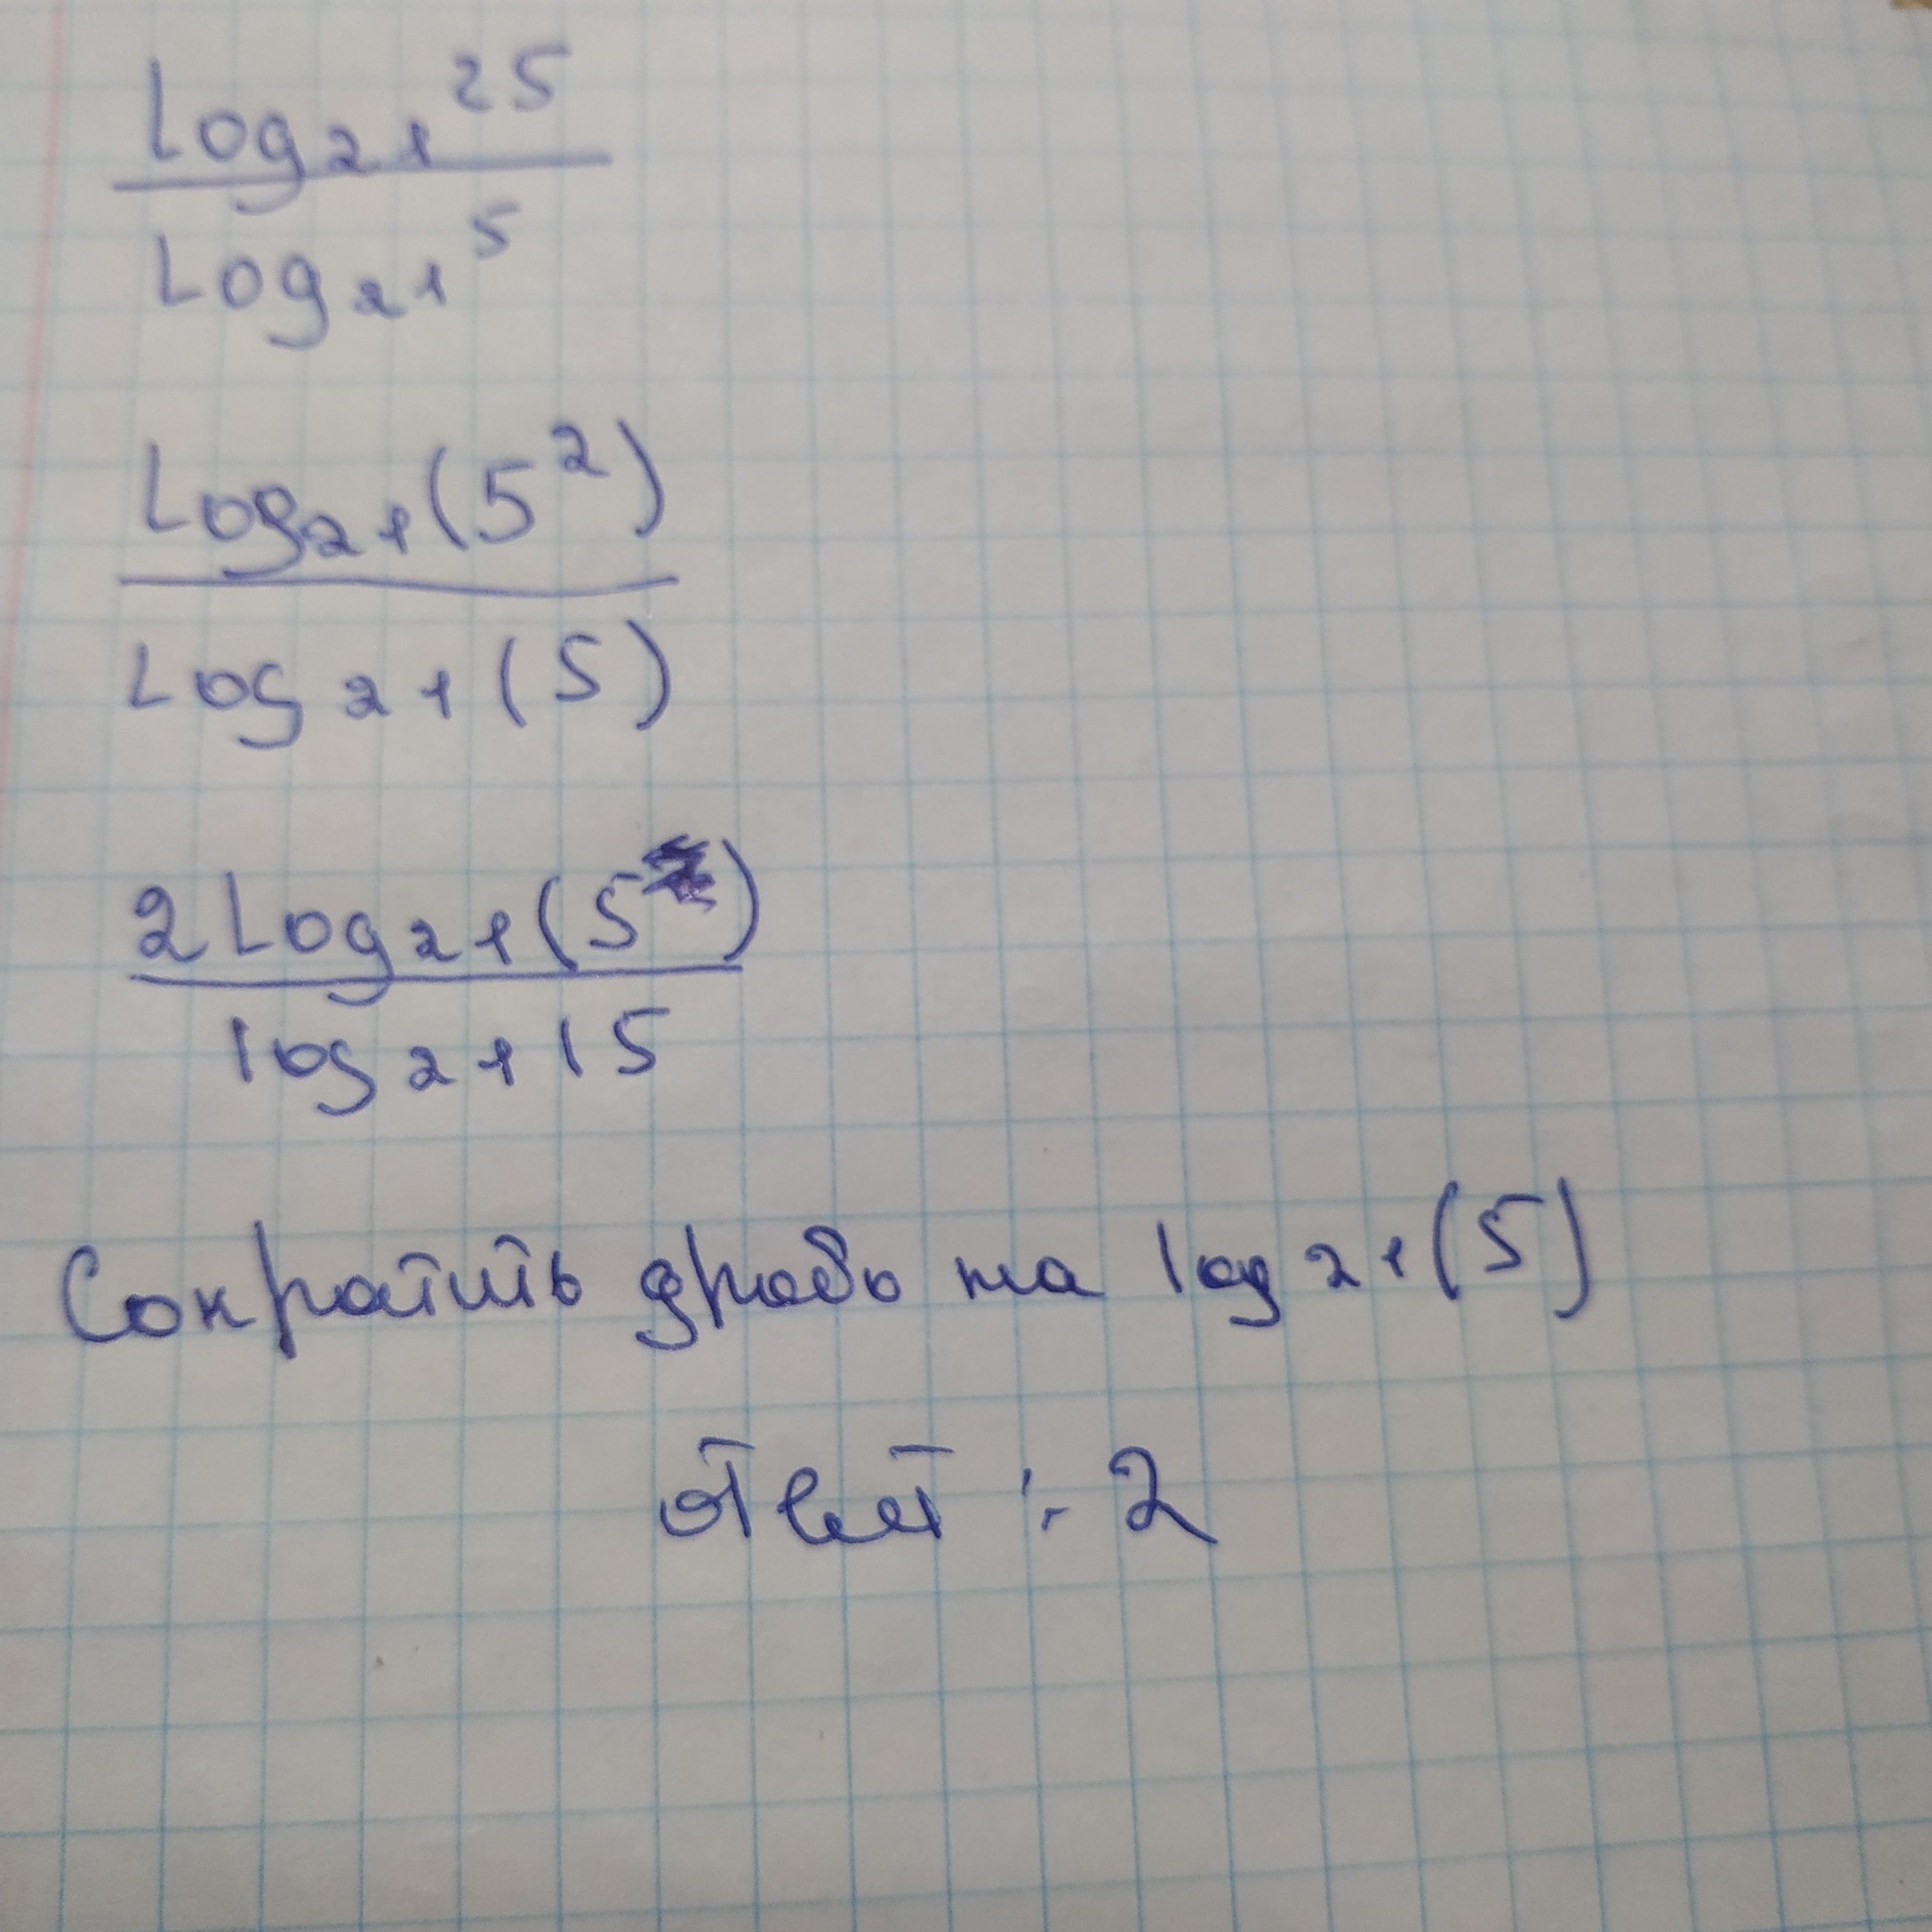 Log₂₁ 25
Log₂₁ 5
Log₂₁(5²)
Log₂₁(5)
2 Log₂₁(5)
log₂₁(5
Сократить дробь на log₂₁(5)
Ответ: 2